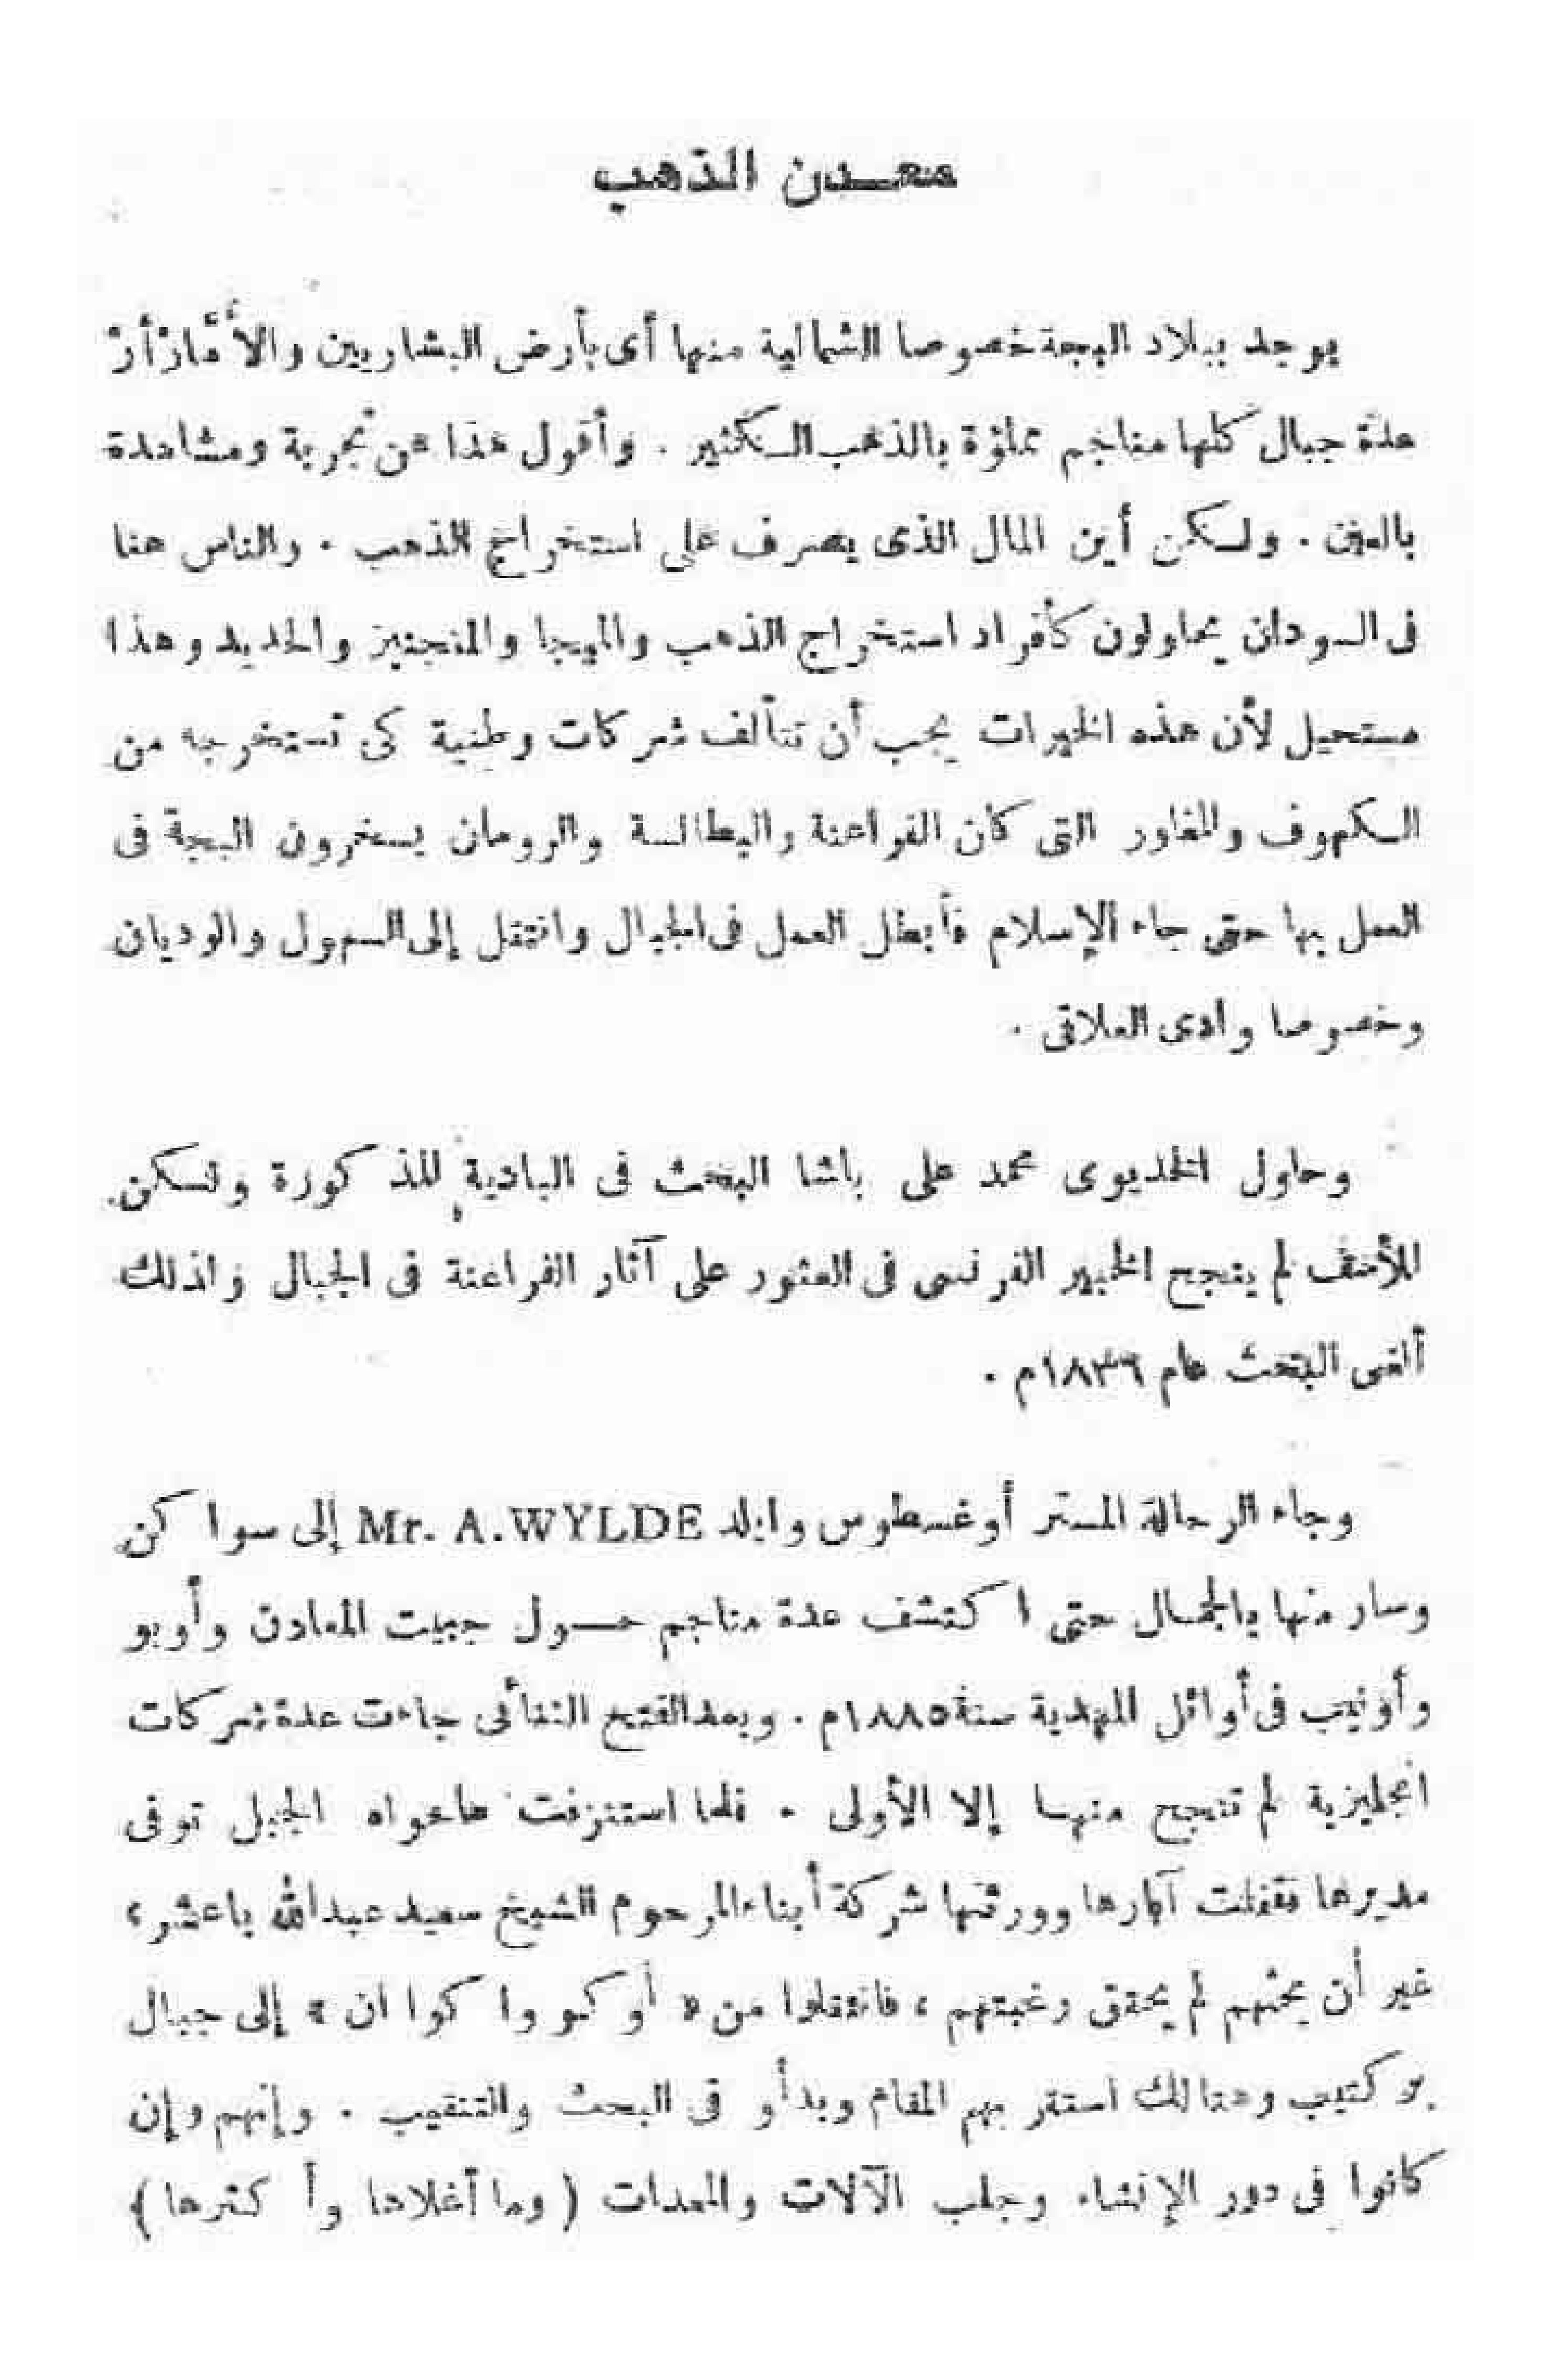 معدن الذهب
يوجد ببلاد البجة خصوصا الشمالية منها أى بأرض البشاريين والأَمَّارْأرْ
عدة جبال كلها مناجم مملؤة بالذهب الكثير . وأقول هذا عن تجربة ومشاهدة
بالعين . ولكن أين المال الذى يصرف على استخراج الذهب . والناس هنا
فى السودان يحاولون كأفراد استخراج الذهب والميجا والمنجنيز والحديد وهذا
مستحيل لأن هذه الخيرات يجب أن تتألف شركات وطنية كى تستخرجه من
الكهوف والمغاور التى كان الفراعنة والبطالسة والرومان يسخرون البجة فى
العمل بها حتى جاء الإسلام فأبطل العمل فى الجبال وانتقل إلى السهول والوديان
وخصوصا وادى العلاقى .
وحاول الخديوى محمد على باشا البحث فى البادية المذكورة ولكن
للأسف لم ينجح الخبير الفرنسى فى العثور على آثار الفراعنة فى الجبال ولذلك
ألغى البحث عام ١٨٣٦م .
وجاء الرحالة المستر أوغسطوس وايلد Mr. A.WYLDE إلى سواكن
وسار منها بالجمال حتى اكتشف عدة مناجم حول جبيت المعادن وأوبو
وأونيب فى أوائل المهدية سنة ١٨٨٥م . وبعد الفتح الثنائى جاءت عدة شركات
انجليزية لم تنجح منها إلا الأولى . فلما استنزفت ماحواه الجبل توفى
مديرها فقفلت آبارها وورثتها شركة أبناء المرحوم الشيخ سعيد عبدالله باعشر ،
غير أن بحثهم لم يحقق رغبتهم ، فانتقلوا من « أوكو واكوا ان » إلى جبال
بركتيب وهنالك استقر بهم المقام وبدأو فى البحث والتنقيب . وإنهم وإن
كانوا فى دور الإنشاء وجلب الآلات والمعدات ( وما أغلاها وأكثرها )